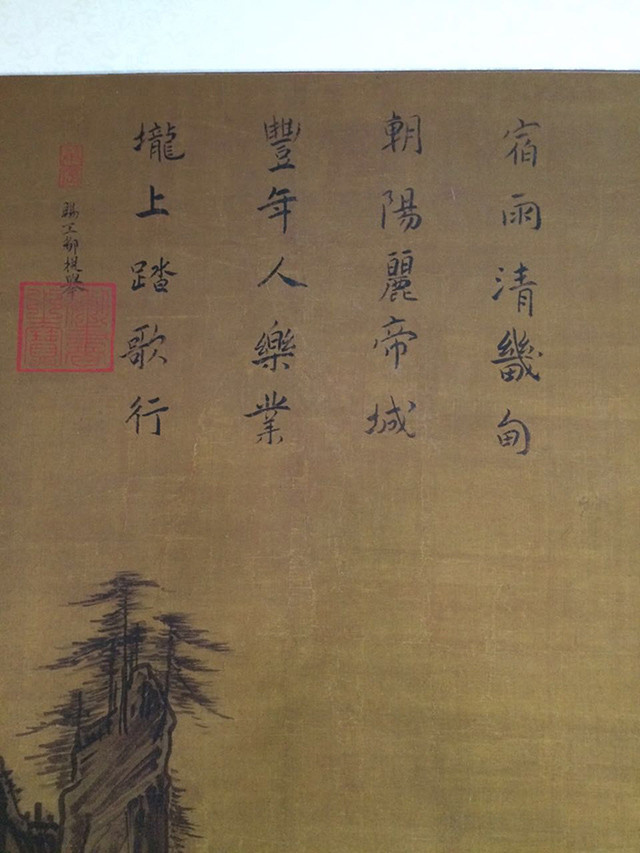 宿雨清畿甸
朝陽麗帝城
豐年人樂業
壠上踏歌行
賜王都提舉